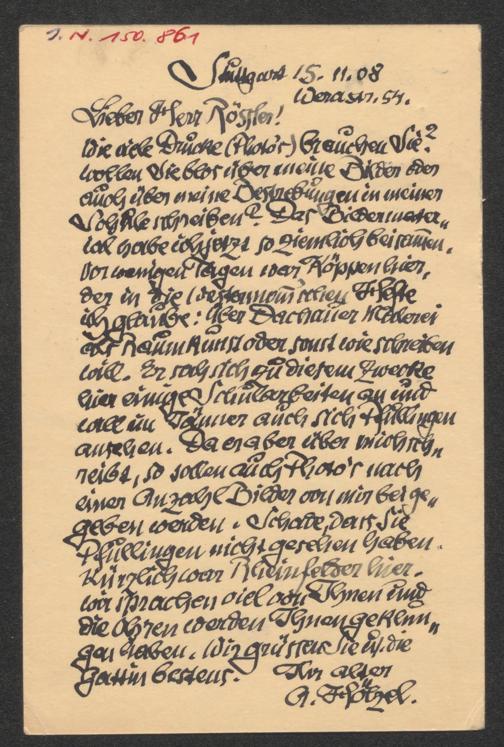 I. N. 150.861
Stuttgart 15. 11. 08
Werastr. 54.
Lieber Herr Rössler!
Wie viele Drucke (Photo's) brauchen Sie?
wollen Sie blos über meine Bilder oder
auch über meine Bestrebungen in meiner
Schule schreiben? Das Bildermater„
ial habe ich jetzt so ziemlich beisammen.
Vor wenigen Tagen war Köppen hier,
der in die Westermann'schen Hefte
ich glaube: Über Dachauer Malerei
als Raumkunst oder sonst wie schreiben
will. Er sah sich zu diesem Zwecke
hier einige Schularbeiten an und
will im Jänner auch sich Pfullingen
ansehen. Da er aber über mich sch„
reibt, so sollen auch Photo's nach
einer Anzahl Bilder von mir beige„
geben werden. Schade, dass Sie
Pfullingen nicht gesehen haben.
Kürzlich war Rheinfelder hier.
wir sprachen viel von Ihnen und
die Ohren werden Ihnen geklun„
gen haben. Wir grüssen Sie u. die
Gattin bestens. Ihr alter
A. Hölzel.